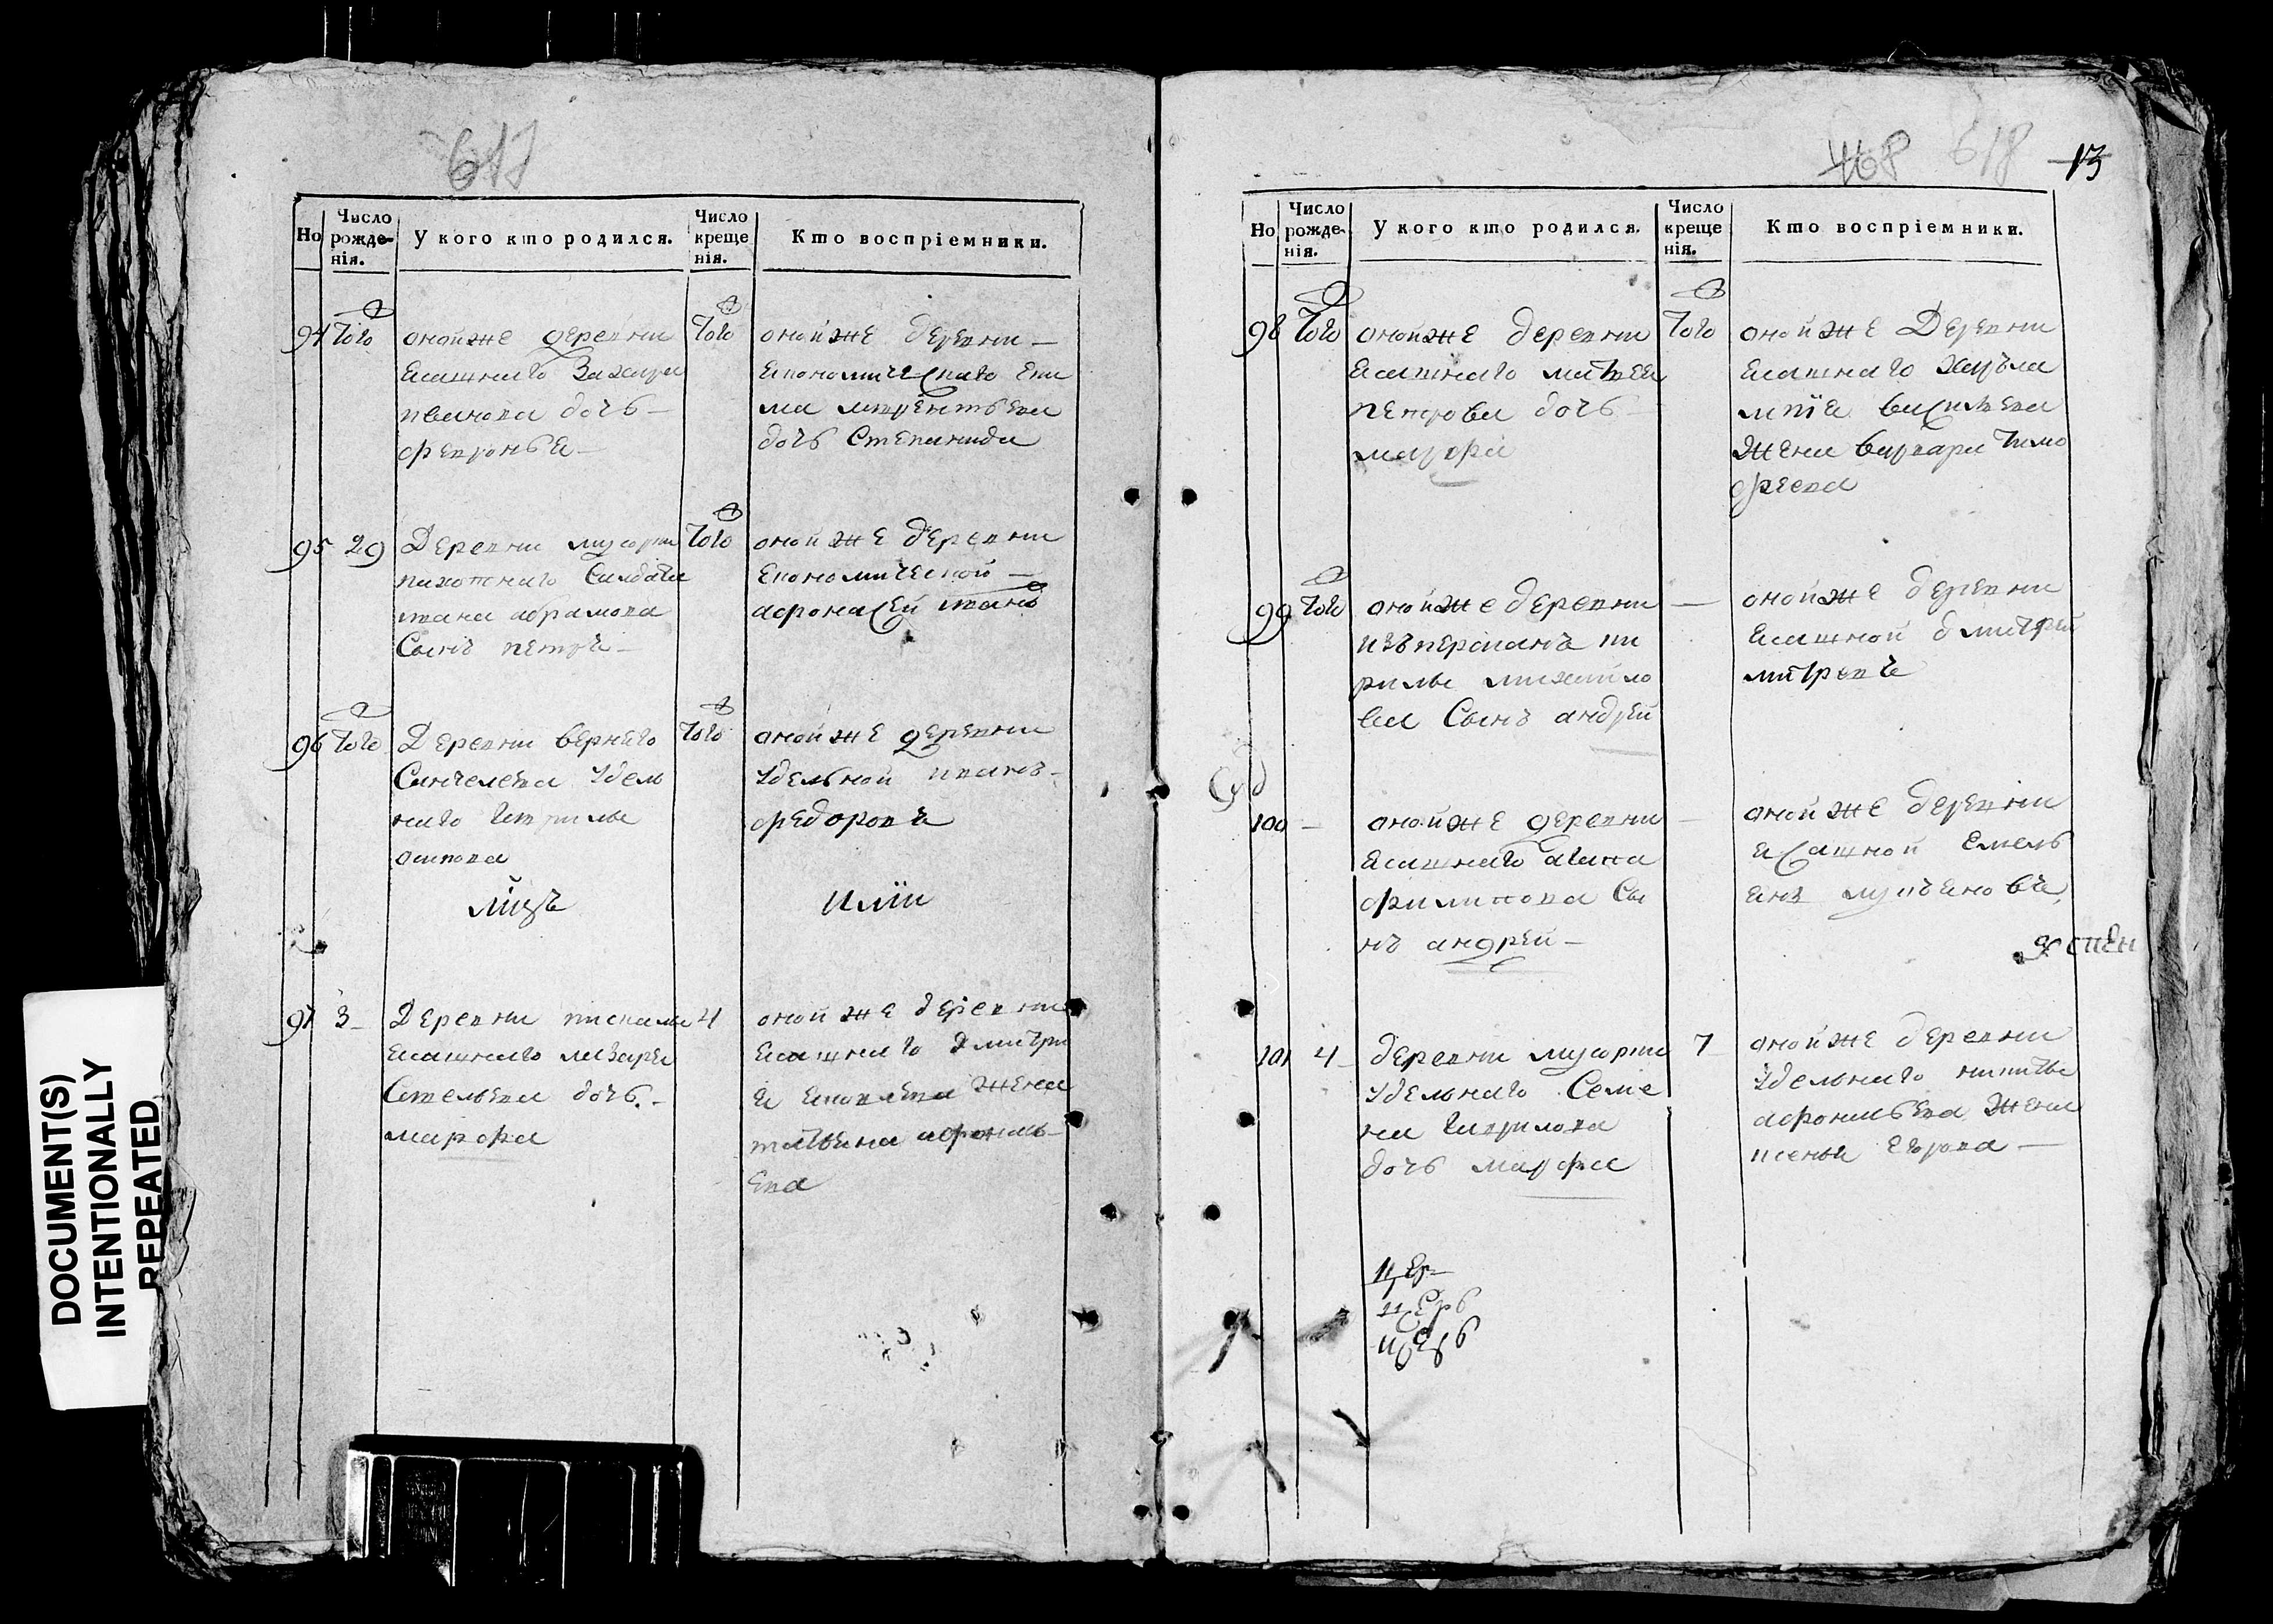 617
Но
Число рожденія.
У кого кто родился.
Число крещенія.
Кто воспріемники.
94 того
оной же деревни
ясашнаго Захара
иванова дочь
февронья
того
оной же деревни
економическаго ели
ма
дочь Степанида
95 29
Деревни мусорки
пахотнаго Салдата
ивана абрамова
Сынъ петръ
того
оной же деревни
економической
афонасей ивано
96 того
Деревни верняго
Санчелеева удель
наго гаврилы
осипова
того
оной же деревни
удельной иванъ
федоровъ
97 3
Деревни пискалы
ясашнаго лазаря
Савельева дочь
марфа
4
оной же деревни
ясашнаго дмитри
я яковлева жена
татьяна афонась
ева
468 618 13
Но
Число рожденія.
У кого кто родился.
Число крещенія.
Кто воспріемники.
98 того
оной же деревни
ясашнаго матвея
петрова дочь
марфа
того
оной же Деревни
ясашнаго харъла
мпїа васильева
жена варвара тимо
феева
99 того
оной же деревни
изъ персианъ ки
рилы михайло
ва Сынъ андрей
оной же деревни
ясашной дмитрей
митревъ
100
оной же деревни
ясашнаго агапа
филипова Сы
нъ андрей
оной же деревни
ясашной емель
янъ лукъяновъ
успен
101 4
деревни мусорки
удельнаго Семе
на гаврилова
дочь марфа
7
оной же деревни
удельнаго никиты
афонасьева жена
ксенья егорова
церь
DOCUMENT(S)
INTENTIONALLY
REPEATED